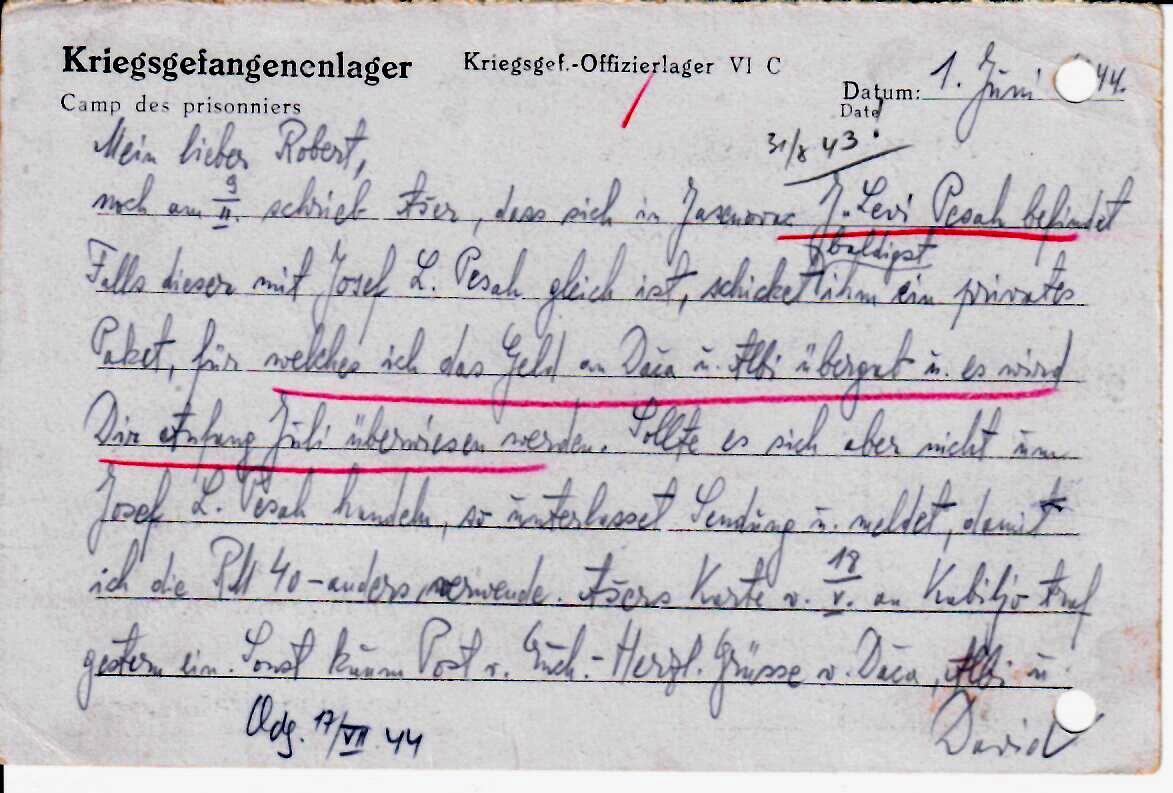 Kriegsgefangenenlager Kriegsgef.-Offizierlager VI C
Camp des prisonniers
Datum: 1. Juni 44.
Date
31/8 43.
Mein lieber Robert,
noch am 9/II. schrieb Ašer, dass sich in Jasenovac J. Levi Pesah befindet
baldigst
Falls dieser mit Josef L. Pesah gleich ist, schicket ihm ein privates
Paket, für welches ich das Geld an Dača u. Albi übergab u. es wird
Dir Anfang Juli überwiesen werden. Sollte es sich aber nicht um
Josef L. Pesah handeln, so unterlasset Sendung u. meldet, damit
ich die RM 40 - anders verwende. Ašers Karte v. 18/V. an Kabiljo traf
gestern ein. Sonst kaum Post v. Euch. - Herzl. Grüsse v. Dača, Albi u.
David
Odg. 17/VII 44